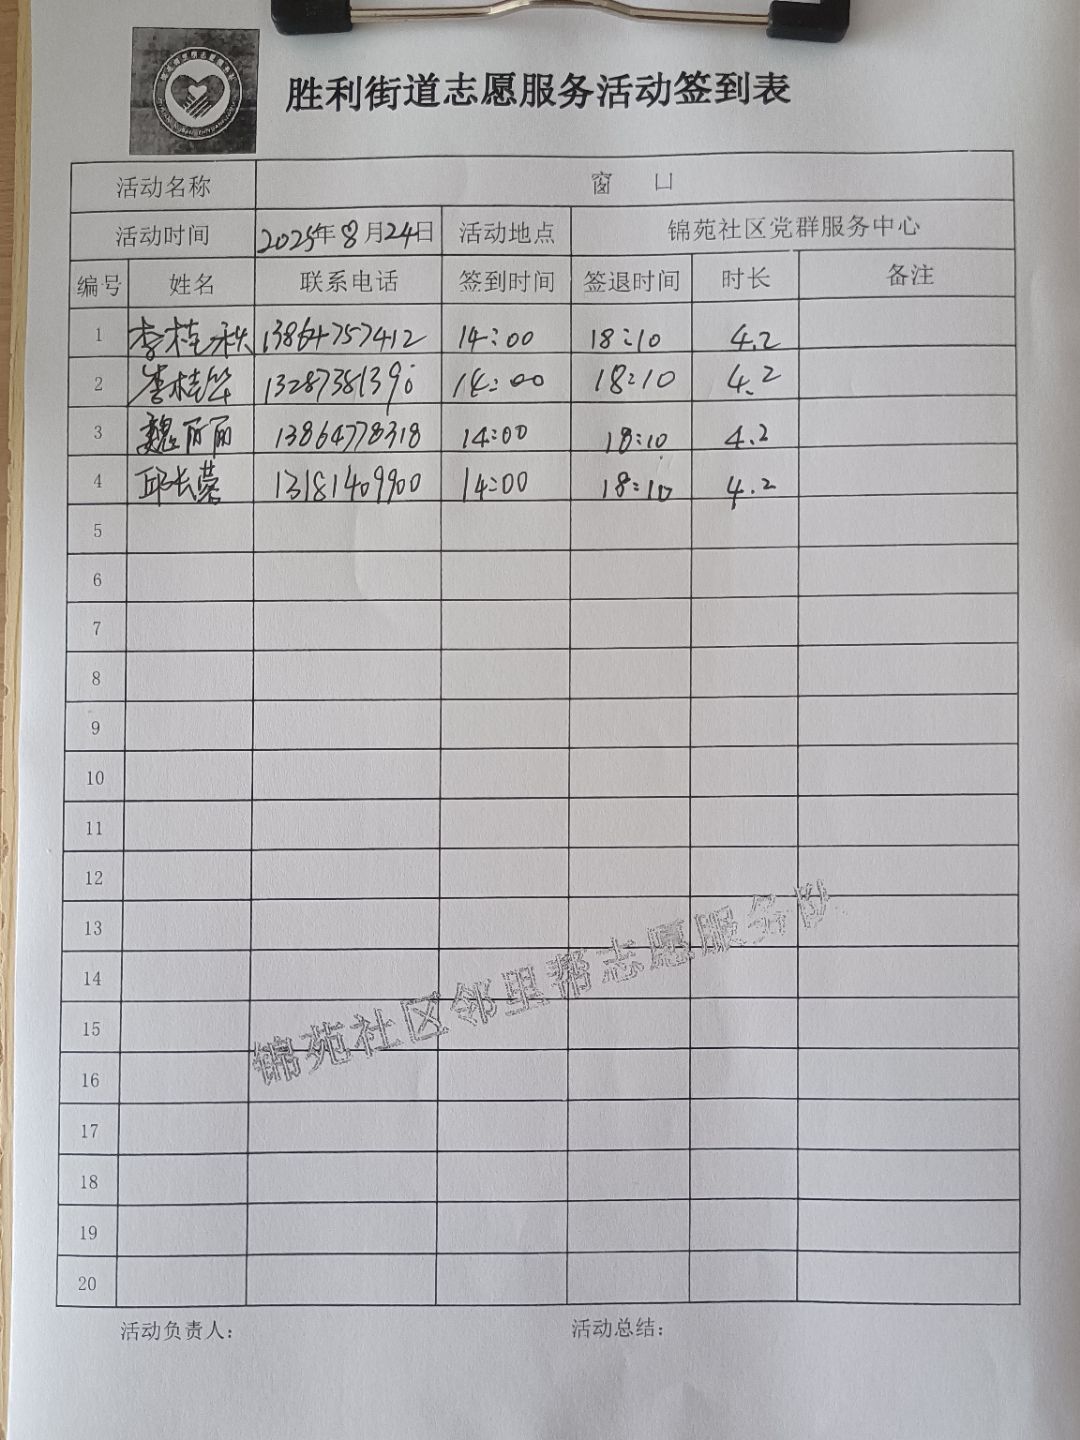 胜利街道志愿服务活动签到表
活动名称 窗 口
活动时间 2025年8月24日 活动地点 锦苑社区党群服务中心
编号 姓名 联系电话 签到时间 签退时间 时长 备注
1 李桂秋 13864757412 14:00 18:10 4.2
2 李桂华 13287381390 14:00 18:10 4.2
3 魏丽丽 13864778318 14:00 18:10 4.2
4 邱长荣 13181409900 14:00 18:10 4.2
5
6
7
8
9
10
11
12
13
14
15
16
17
18
19
20
锦苑社区邻里帮志愿服务队
活动负责人： 活动总结：